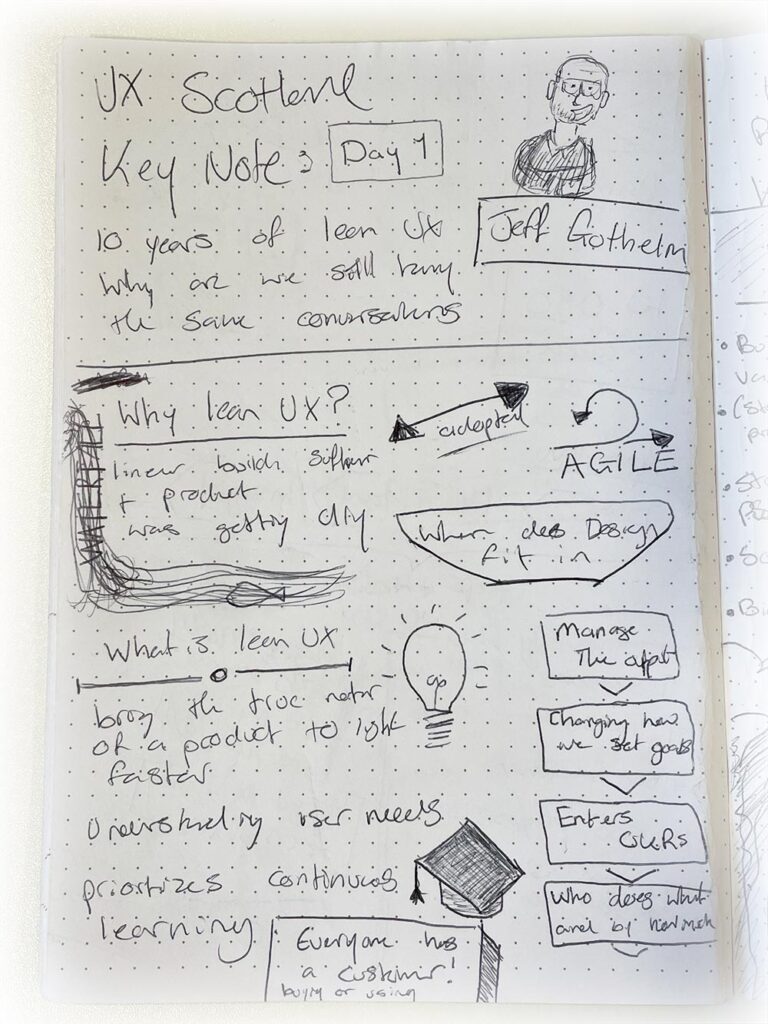 UX Scotland
Key Note: Day 1
Jeff Gothelm
10 years of lean UX
Why are we still having
the same conversations
WATERFALL
Why lean UX?
linear build software
+ product
was getting
adopted
AGILE
When does Design
fit in
What is lean UX
bring the true nature
of a product to light
faster
go
Understanding user needs
prioritizes continuous
learning
Everyone has
a customer!
buying or using
Manage
The
Changing how
we set goals
Enters
OKRs
Who does what
and by how much